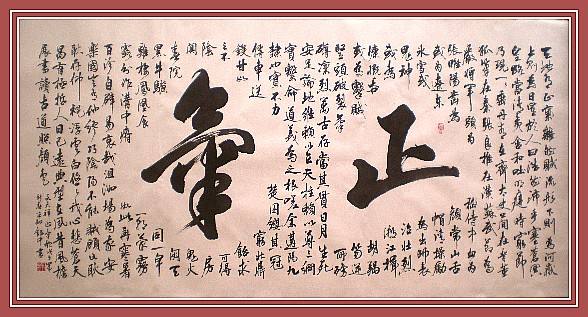 正氣
天地有正氣雜然賦流形下則為河嶽
上則為日星於人曰浩然沛乎塞蒼冥
皇路當清夷含和吐明庭時窮節
乃現一一垂丹青在齊太史簡在晉董
狐筆在秦張良椎在漢蘇武節為
嚴將軍頭為嵇侍中血為
張睢陽齒為顏常山舌
或為遼東帽清操勵
冰雪或為出師表
鬼神泣壯烈
或為渡江楫
慷慨吞胡羯
或為擊賊笏逆
豎頭破裂是氣所磅
礴凜烈萬古存當其貫日月生死
安足論地維賴以立天柱賴以尊三綱
實繫命道義為之根嗟余遘陽九
隸也實不力楚囚纓其冠
傳車送窮北鼎
鑊甘如飴求
之不可得
陰房
闃鬼火
春院閟天
黑牛驥同一皁
雞棲鳳凰食一朝蒙霧
露分作溝中瘠如此再寒暑
百沴自辟易哀哉沮洳場為我安
樂國豈有他繆巧陰陽不能賊顧此耿
耿存仰視浮雲白悠悠我心悲蒼天
曷有極哲人日已遠典型在夙昔風檐
展書讀古道照顏色